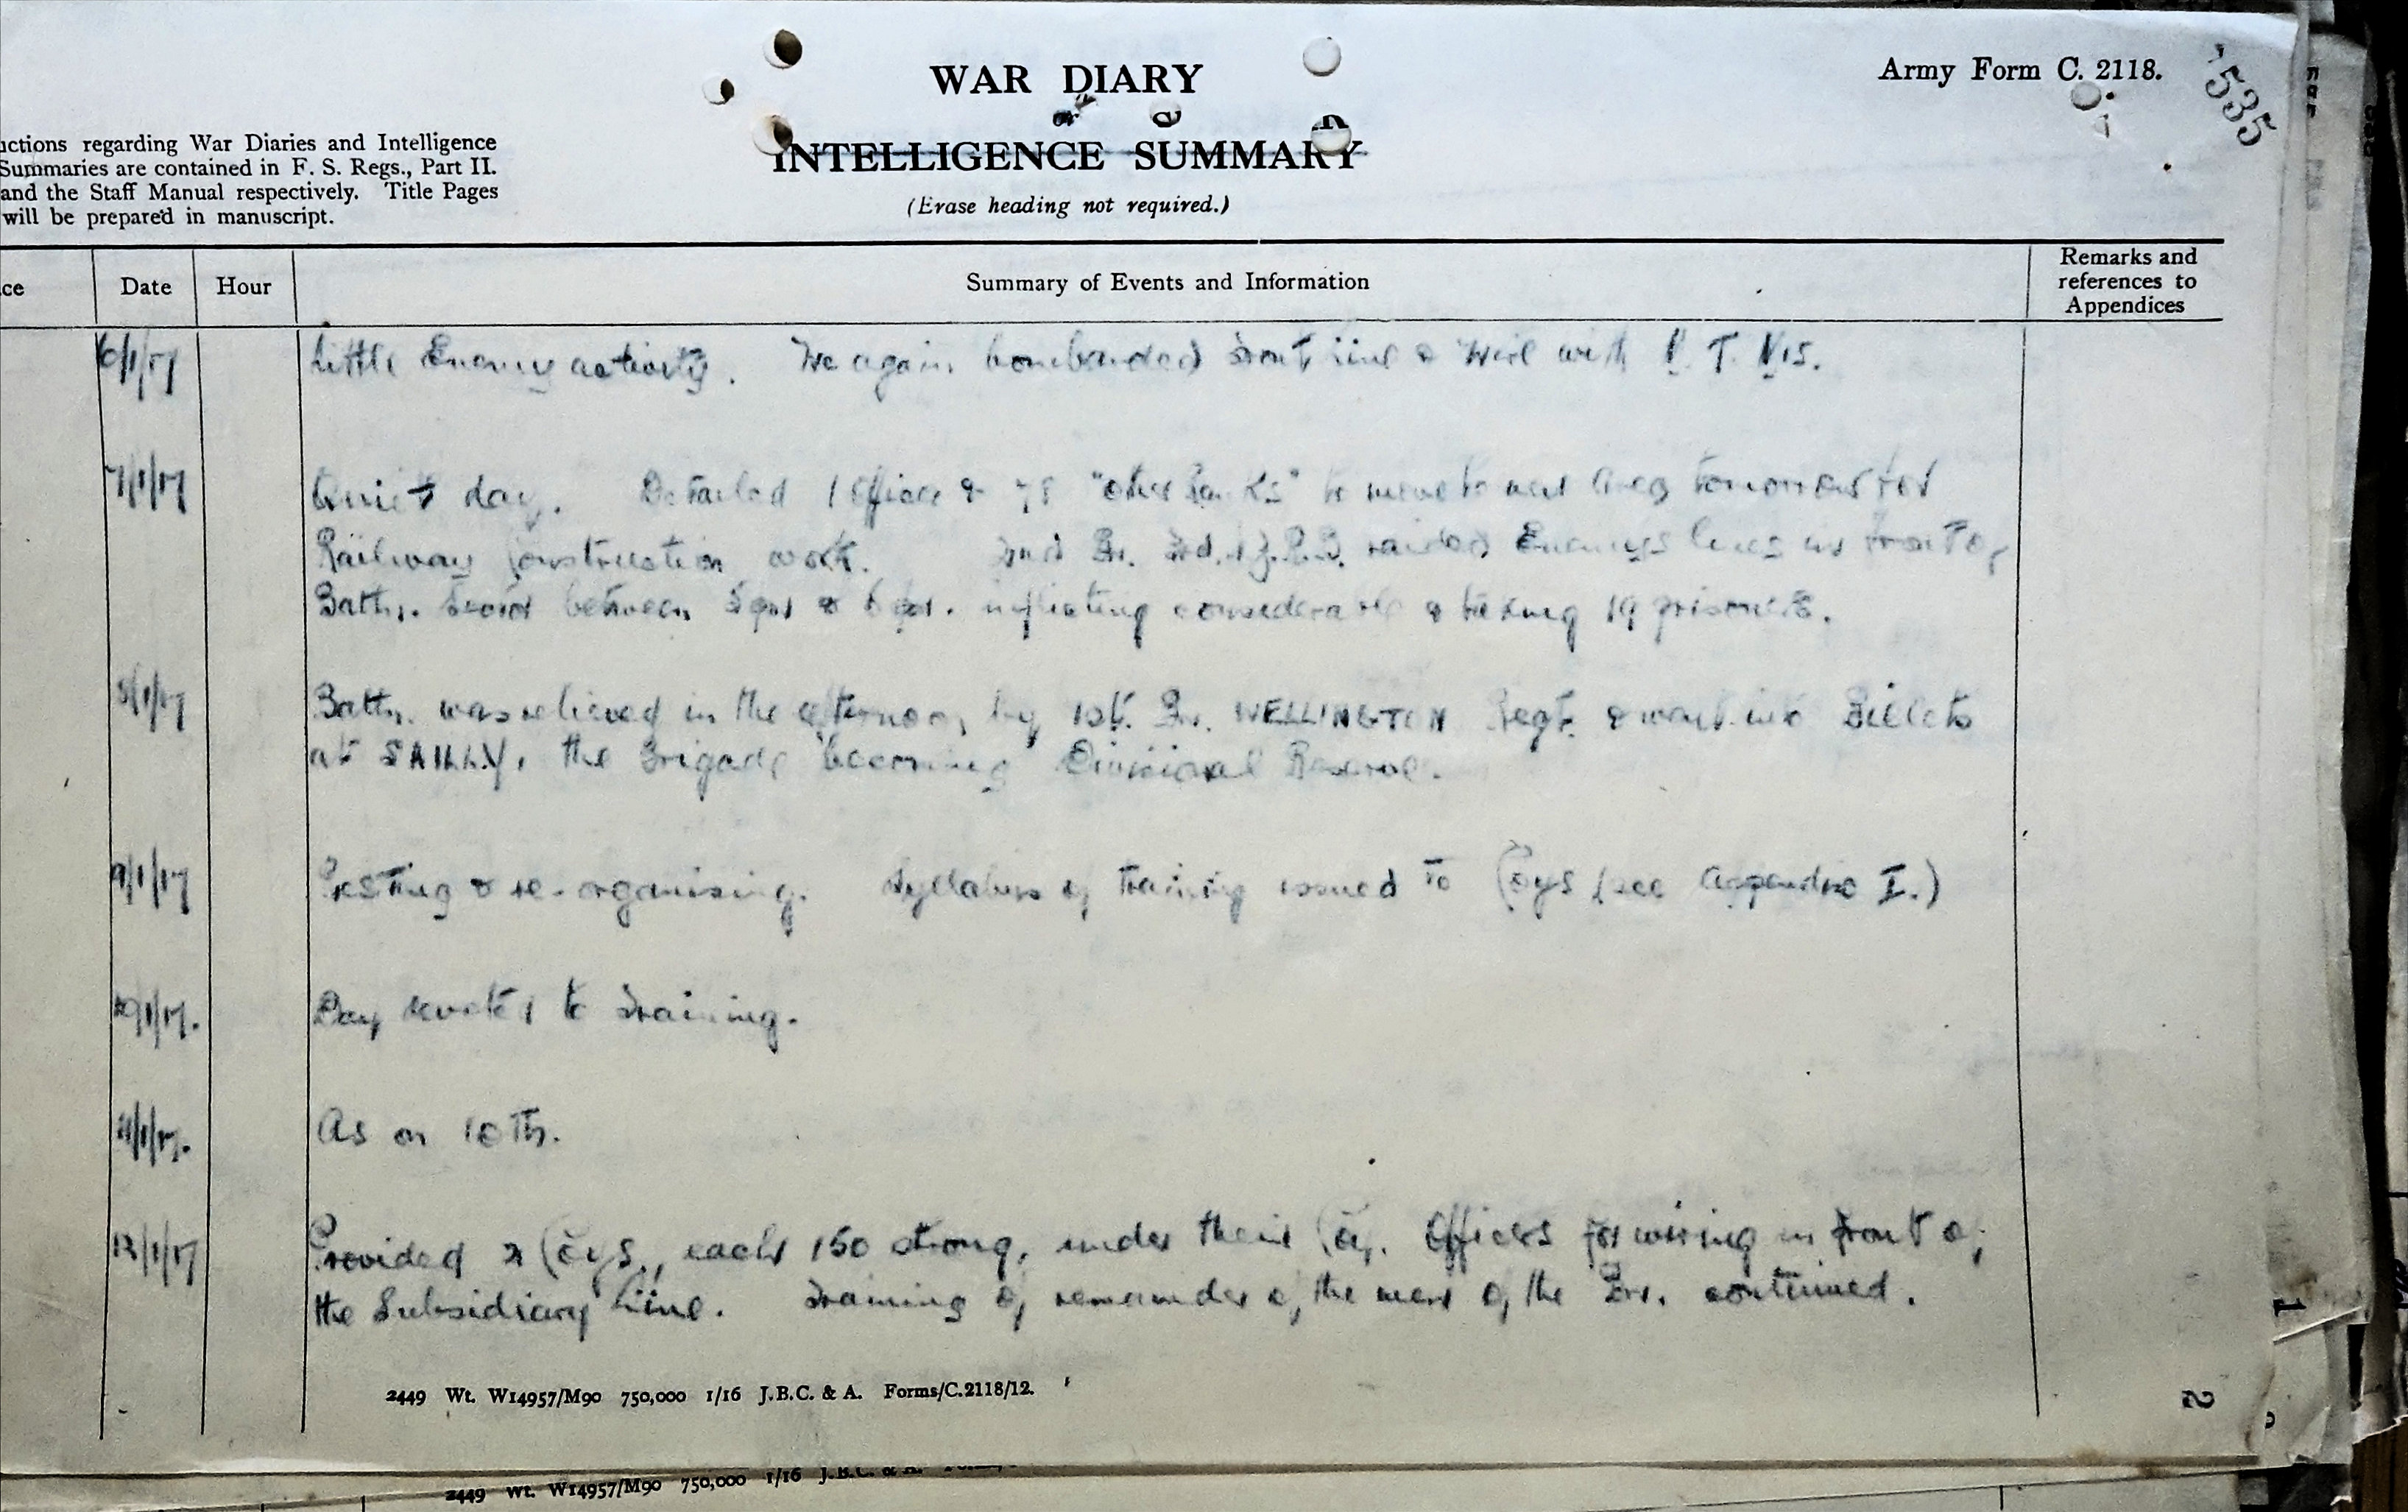 WAR DIARY
Army Form C. 2118.
535
or
INTELLIGENCE SUMMARY
(Erase heading not required.)
uctions regarding War Diaries and Intelligence
Summaries are contained in F. S. Regs., Part II.
and the Staff Manual respectively. Title Pages
will be prepared in manuscript.
ce Date Hour Summary of Events and Information Remarks and references to Appendices
6/1/17 Little Enemy activity. We again bombarded front line & wire with T.
7/1/17 Quiet day. Detailed 1 Officer & 78 "other Ranks" to move to new area tomorrow for
Railway Construction work. 2nd Bn. 3rd. N.Z.R.B. raided Enemys lines in front of
Battn. front between 5 pm & 6 pm. inflicting considerable & taking 19 prisoners.
8/1/17 Battn. was relieved in the afternoon by 1st. Bn. WELLINGTON Regt. & went into Billets
at SAILLY, the Brigade becoming Divisional Reserve.
9/1/17 Resting & re-organising. Syllabus of training issued to Coys (see Appendix I.)
10/1/17. Day devoted to training.
11/1/17. As on 10th.
12/1/17 Provided 2 Coys., each 150 strong, under their Coy. Officers for wiring in front of
the Subsidiary Line. Training of remainder of the men of the Bn. continued.
2449 Wt. W14957/M90 750,000 1/16 J.B.C. & A. Forms/C.2118/12.
2449 Wt. W14957/M90 750,000 1/16 J.B.C. & A.